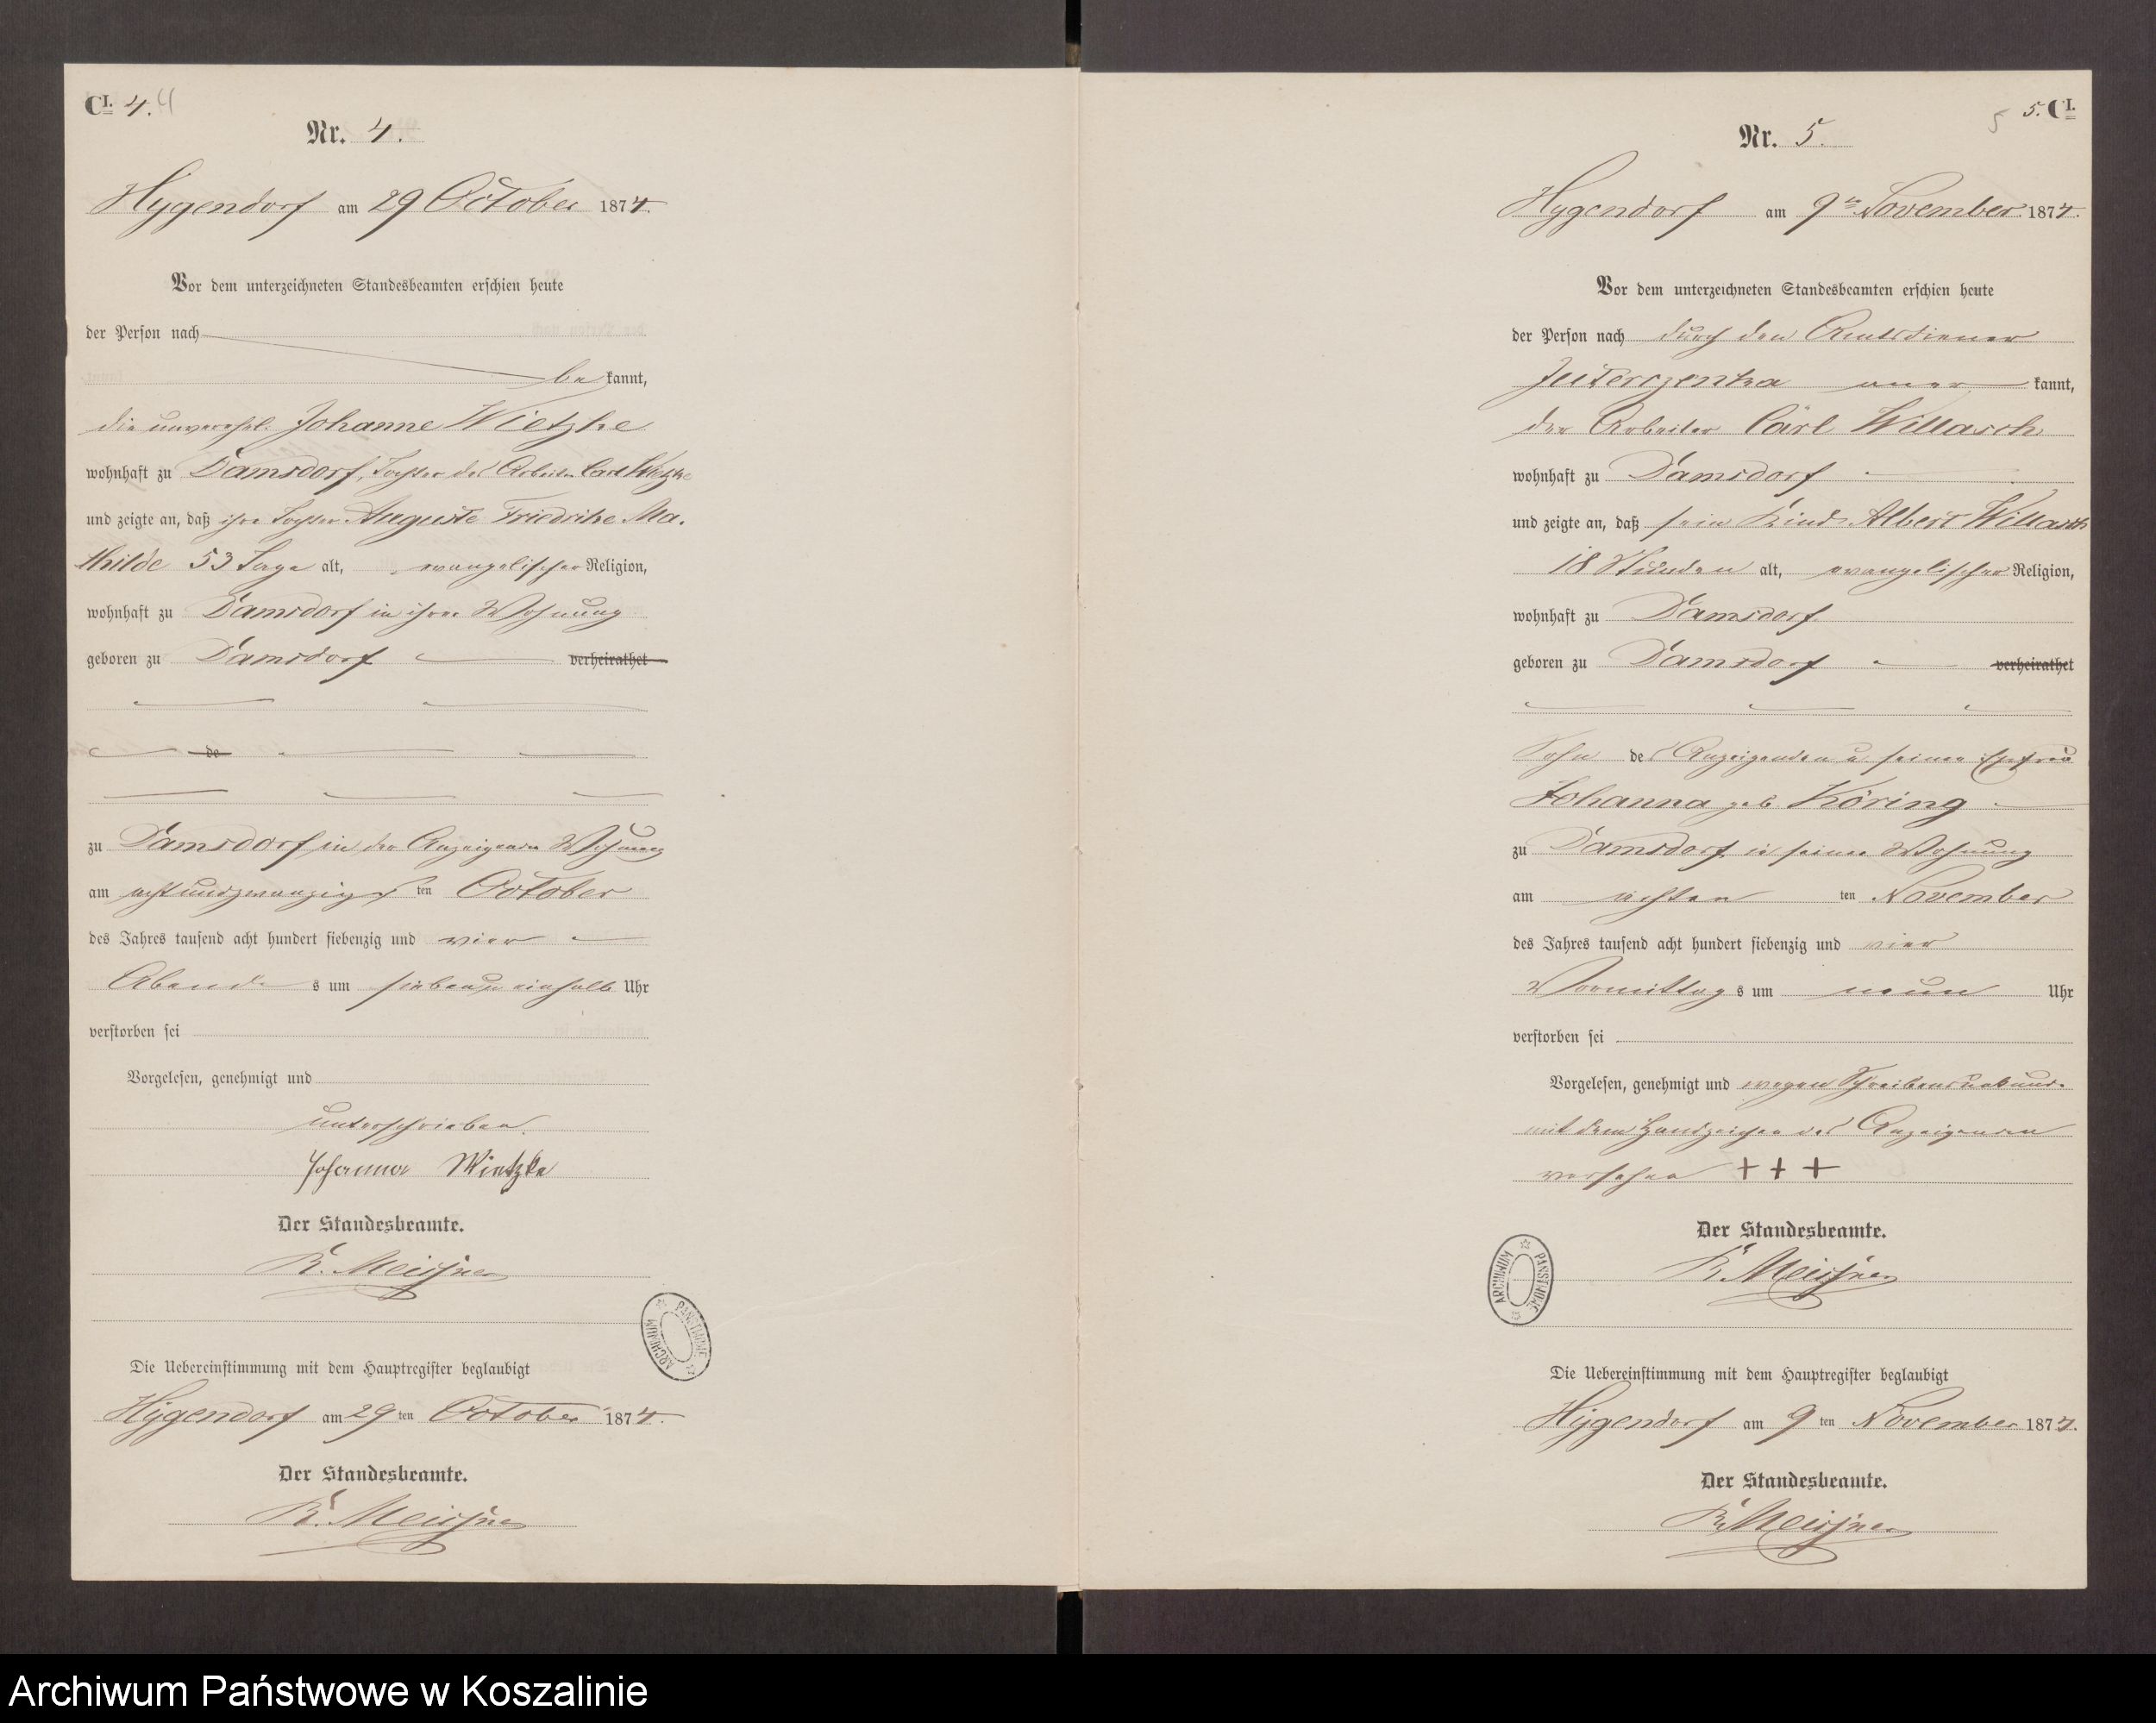 CI. 4. 4
Nr. 4.
Hygendorf am 29 October 1874.
Vor dem unterzeichneten Standesbeamten erschien heute
der Person nach
be kannt,
die unverehel. Johanne Wietzke
wohnhaft zu Damsdorf, Tochter des Arbeiters Carl Wietzke
und zeigte an, daß ihre Tochter Auguste Friedrike Ma-
thilde 53 Tage alt, evangelischer Religion,
wohnhaft zu Damsdorf in ihrer Wohnung
geboren zu Damsdorf verheirathet
de
zu Damsdorf in der Anzeigenden Wohnung
am achtundzwanzigs ten October
des Jahres tausend acht hundert siebenzig und vier
Abends s um sieben einhalb Uhr
verstorben sei
Vorgelesen, genehmigt und
unterschrieben.
Johanna Wietzke
Der Standesbeamte.
R. Meißner
Die Uebereinstimmung mit dem Hauptregister beglaubigt
Hygendorf am 29 ten October 1874.
Der Standesbeamte.
R. Meißner
ARCHIWUM PAŃSTWOWE
5 5. CI.
Nr. 5.
Hygendorf am 9ten November 1874.
Vor dem unterzeichneten Standesbeamten erschien heute
der Person nach durch den Amtsdiener
aner kannt,
der Arbeiter Carl Willasch
wohnhaft zu Damsdorf
und zeigte an, daß sein Kind Albert Willasch
18 Stunden alt, evangelischer Religion,
wohnhaft zu Damsdorf
geboren zu Damsdorf verheirathet
Sohn des Anzeigenden u seiner Ehefrau
Johanna geb Köring
zu Damsdorf in seiner Wohnung
am achten ten November
des Jahres tausend acht hundert siebenzig und vier
Vormittag s um neun Uhr
verstorben sei
Vorgelesen, genehmigt und wegen Schreibensunkunde
mit dem Handzeichen des Anzeigenden
versehen + + +
Der Standesbeamte.
R. Meißner
ARCHIWUM PAŃSTWOWE
Die Uebereinstimmung mit dem Hauptregister beglaubigt
Hygendorf am 9 ten November 1874.
Der Standesbeamte.
R. Meißner
Archiwum Państwowe w Koszalinie